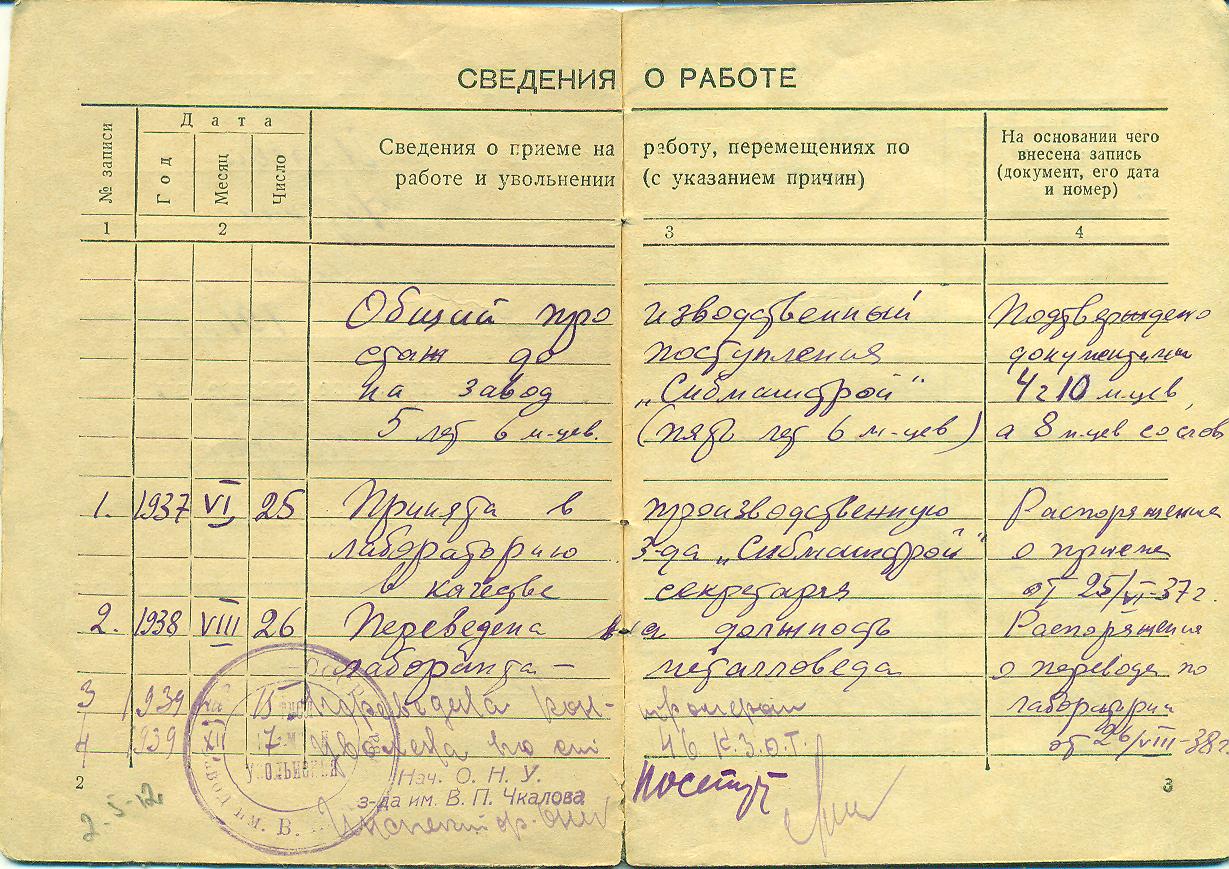 СВЕДЕНИЯ О РАБОТЕ
№ записи
Дата
Год
Месяц
Число
Сведения о приеме на работу, перемещениях по
работе и увольнении (с указанием причин)
На основании чего
внесена запись
(документ, его дата
и номер)
1 2 3 4
Общий производственный Подтверждено
стаж до поступления документами
на завод „Сибмашстрой“ 4 г 10 м-цев,
5 лет 6 м-цев. (пять лет 6 м-цев) а 8 м-цев со слов
1. 1937 VI 25 Принята в производственную Распоряжение
лабораторию з-да „Сибмашстрой“ о приеме
в качестве секретаря от 25/VI-37 г.
2. 1938 VIII 26 Переведена на должность Распоряжения
лаборанта – металловеда о переводе по
3 1939 15 Переведена контролером лаборатории
4 1939 XII 17 Уволена по ст 46 К.З.О.Т. от 26/VIII-38 г
Нач. О. Н. У.
з-да им. В. П. Чкалова
Инспектор
2
3
2-5-12